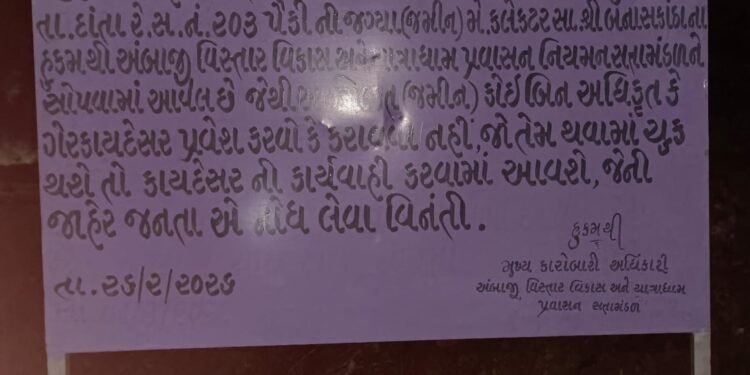 તા. દાંતા રે. સ. નં. ૨૦૩ પૈકી ની જગ્યા (જમીન) મે. કલેકટર સા. શ્રી બનાસકાંઠા ના
હુકમથી અંબાજી વિસ્તાર વિકાસ અને યાત્રાધામ પ્રવાસન નિયમન સત્તામંડળ ને
સોંપવામાં આવેલ છે જેથી (જમીન) કોઇ બિન અધિકૃત કે
ગેરકાયદેસર પ્રવેશ કરવો કે કરાવવો નહીં, જો તેમ થવામાં ચુક
થશે તો કાયદેસર ની કાર્યવાહી કરવામાં આવશે, જેની
જાહેર જનતા એ નોંધ લેવા વિનંતી.
હુકમથી
મુખ્ય કારોબારી અધિકારી
તા. ૨૬/૨/૨૦૨૬
અંબાજી વિસ્તાર વિકાસ અને યાત્રાધામ
પ્રવાસન સત્તામંડળ